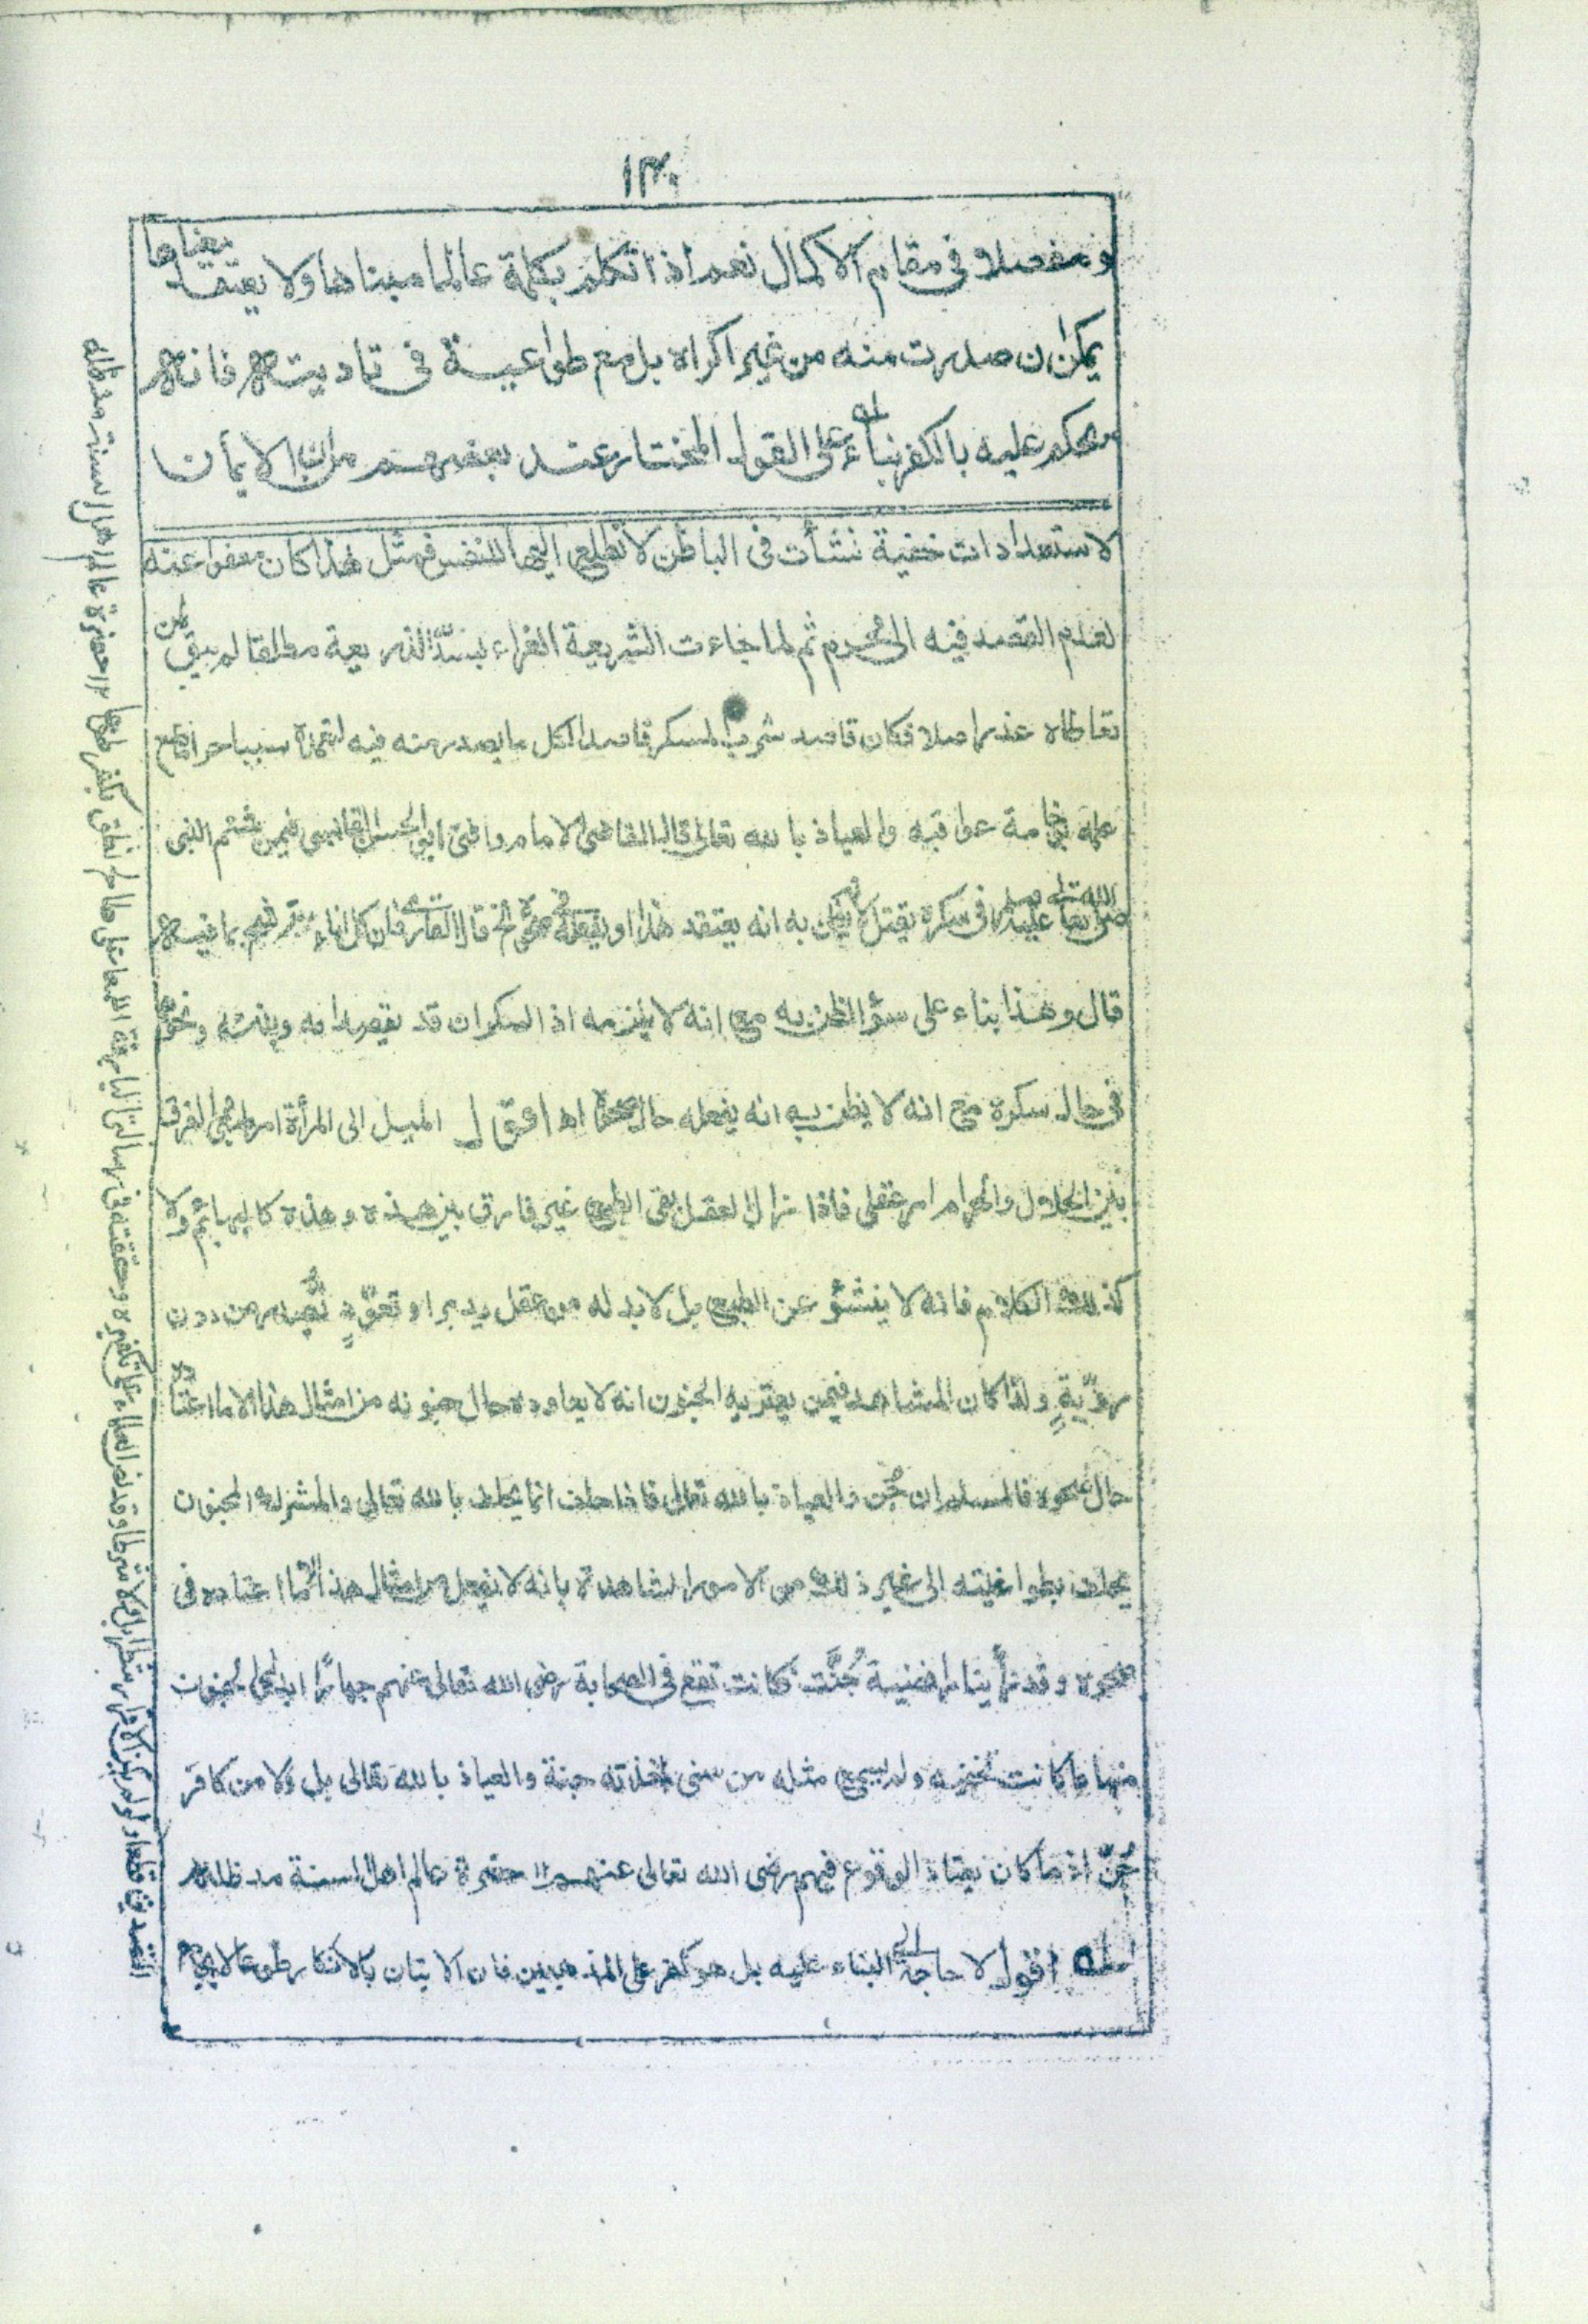 ١٣٠
ومفصلا فى مقام الاكمال نعم اذا تكلم بكلمة عالما مبناها ولا يعتقد معناها
يمكن ان صدرت منه من غير اكراه بل مع طواعية فى تاديته فانه
يحكم عليه بالكفر بناء له على القول المختار عند بعضهم من ان الايمان
لاستعدادات خفية نشأت فى الباطن لا تطلع اليها النفس فمثل هذا كان معفوا عنه
لعدم القصد فيه الى محرم ثم لما جاءت الشريعة الغراء بسدّ الذريعة مطلقا لم يبق لمن
تعاطاه عذر اصلا فكان قاصد شرب المسكر قاصدا لكل ما يصدر منه فيه لتعمده سببا حراما مع
علمه بوخامة عواقبه والعياذ بالله تعالى قال القاضى الامام وافتى ابو الحسن القابسى فيمن شتم النبى
صلى الله تعالى عليه وسلم فى سكره يقتل لانه يظن به انه يعتقد هذا ويفعله فى صحوه الخ قال القارى فان كل اناء يترشح بما فيه
قال وهذا بناء على سؤ الظن به مع انه لا يلزمه اذ السكران قد يقصد امه وبنته ونحوهما
فى حال سكره مع انه لا يظن به انه يفعله حال صحوه اه اقول الميل الى المرأة امر طبعى والفرق
بين الحلال والحرام امر عقلى فاذا زال العقل بقى الطبع غير فارق بين هذه وهذه كالبهائم ولا
كذلك الكلام فانه لا ينشؤ عن الطبع بل لا بد له من عقل يدبر او تعوّدٍ يصدر من دون
رويّةٍ ولذا كان المشاهد فيمن يعتريه الجنون انه لا يعاوده حال جنونه من امثال هذا الا ما اعتاده
حال صحوه فالمسلم ان جُن والعياذ بالله تعالى فاذا حلف انما يحلف بالله تعالى والمشرك المجنون
يحلف بطواغيته الى غير ذلك من الامور الشاهدة بانه لا يفعل من امثال هذا الا ما اعتاده فى
صحوه وقد رأينا رافضية جُنَّت فكانت تقع فى الصحابة رضى الله تعالى عنهم جهارًا ابدى الجنون
منها ما كانت تخفيه ولم يسمع مثله من سنى اخذته جنة والعياذ بالله تعالى بل ولا من كافر
جُنّ اذ ما كان يعتاد الوقوع فيهم رضى الله تعالى عنهم ١٢ حضرة عالم اهل السنة مد ظله
له اقول لا حاجة الى البناء عليه بل هو كفر على المذهبين فان الاتيان بالانكار طوعا لا يجامع